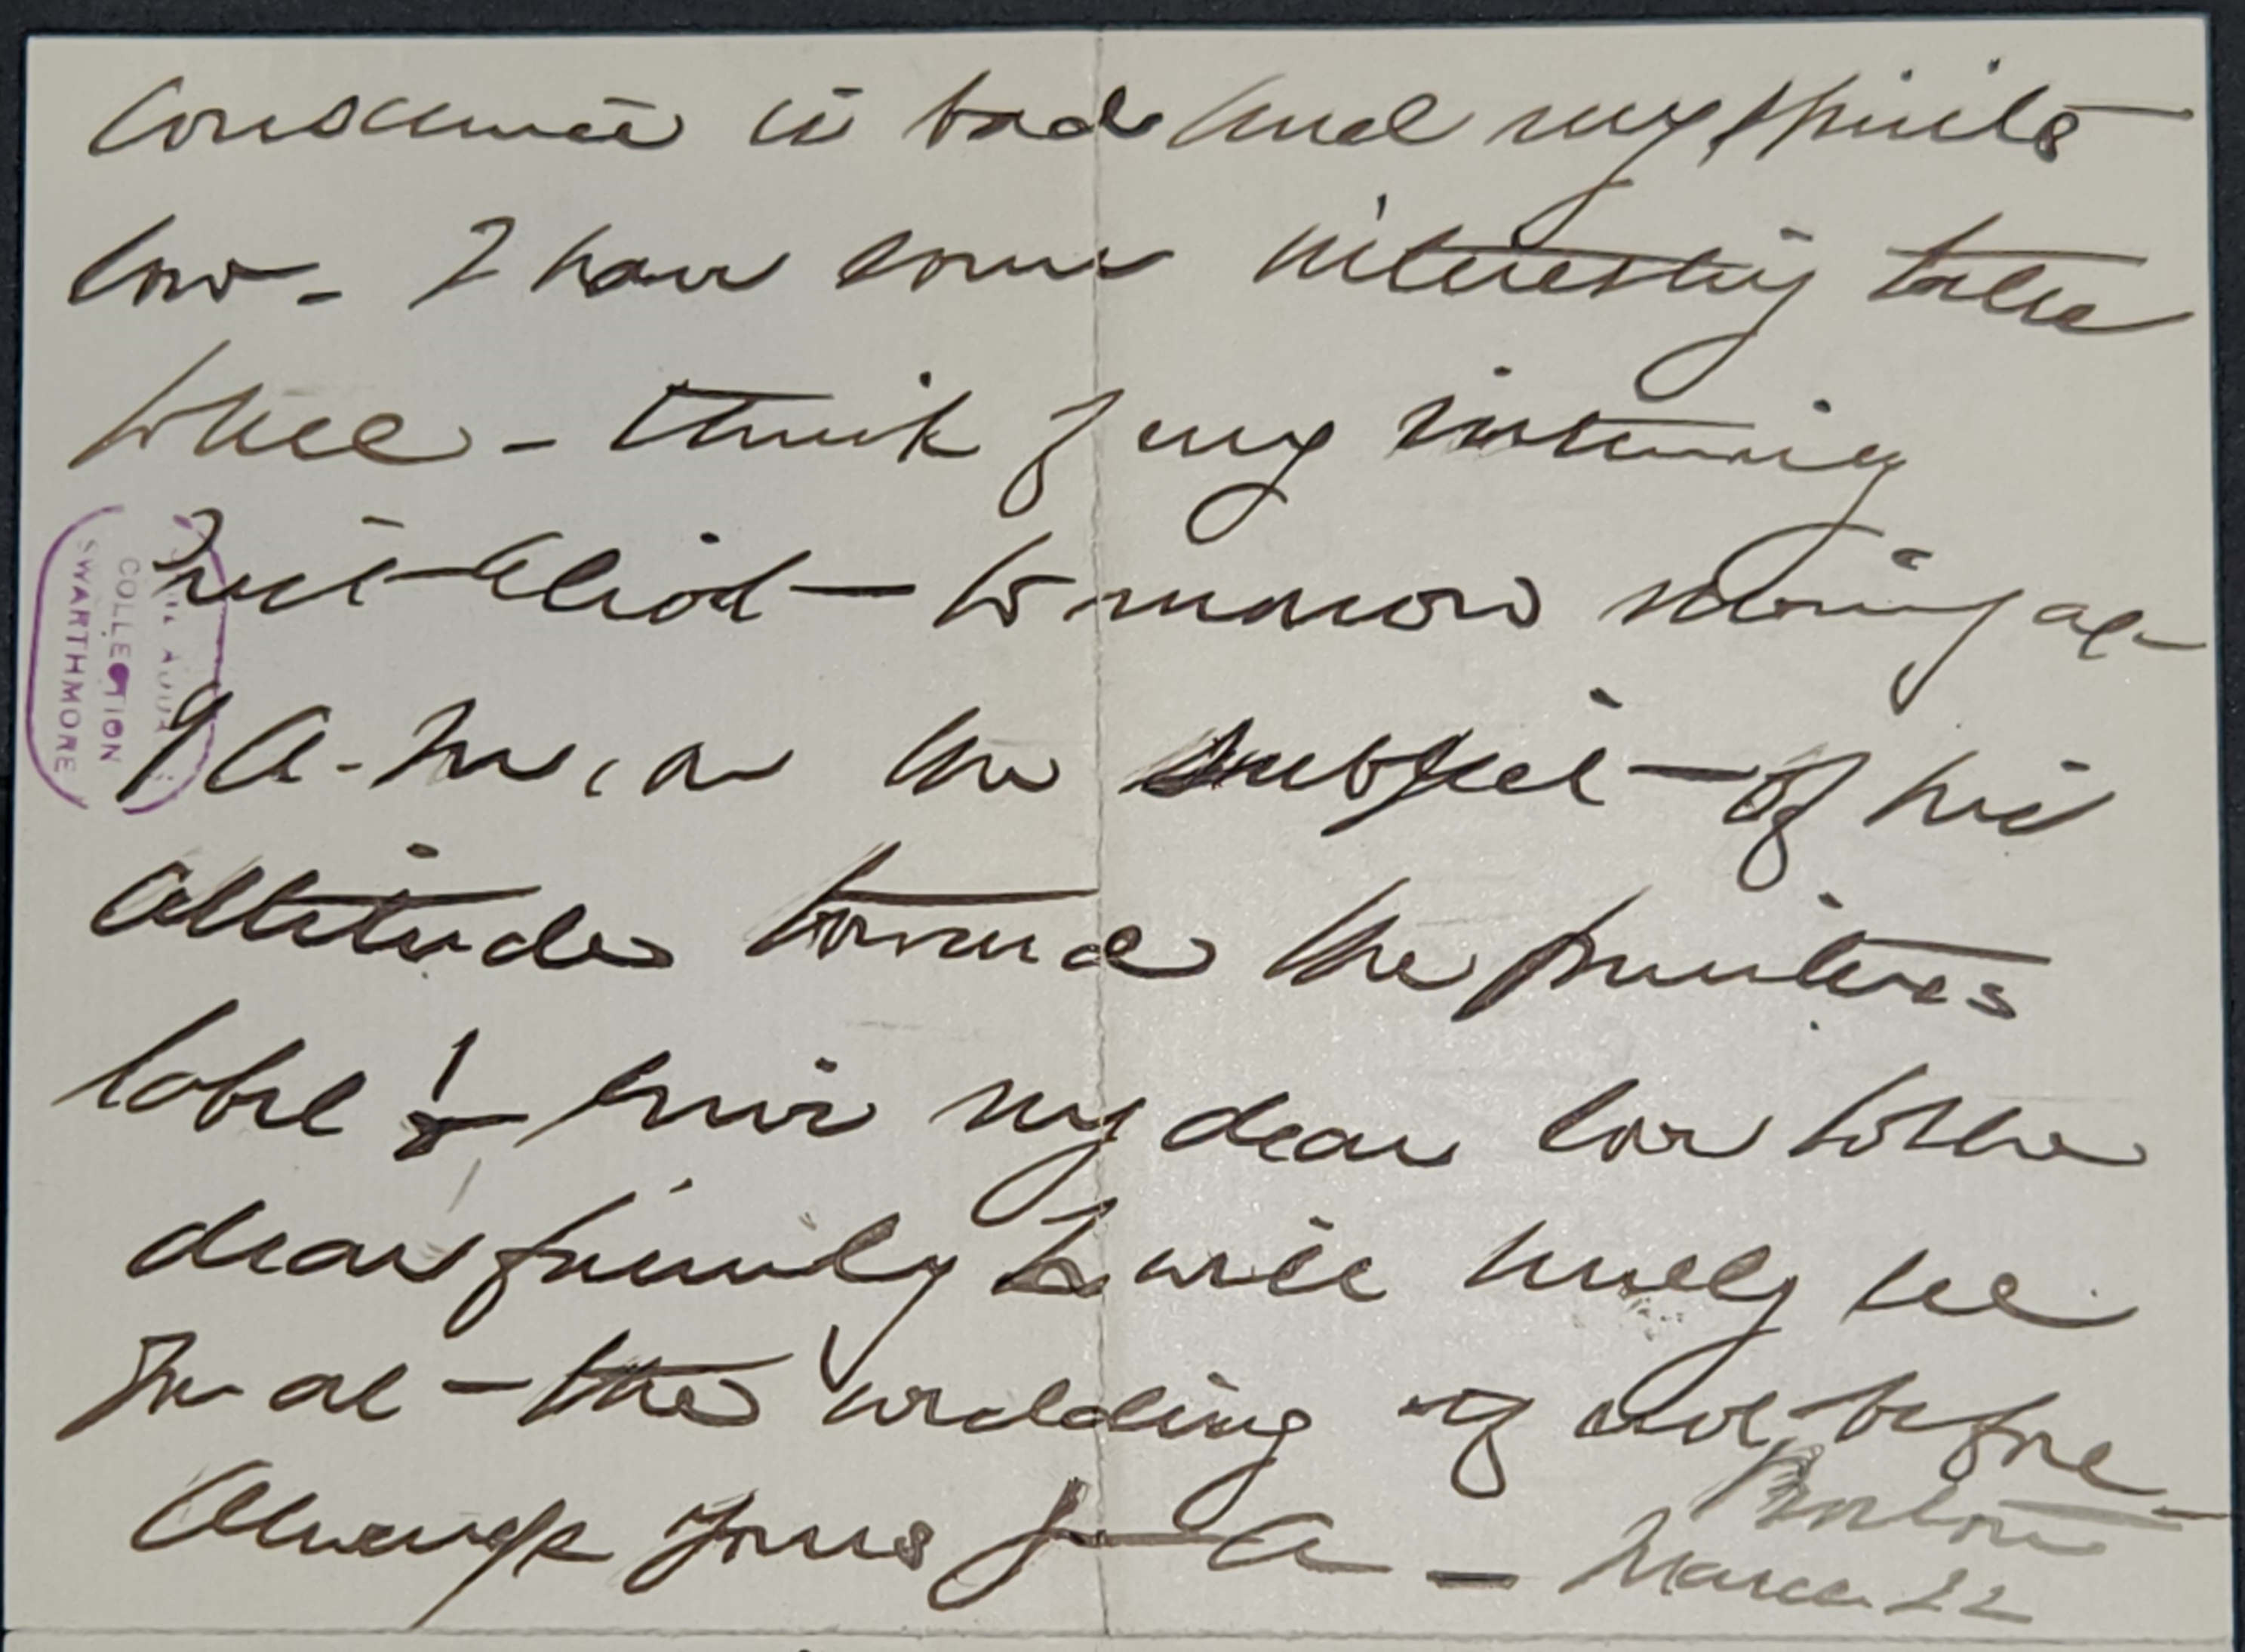 conscience is bad and my spirits
low - I have some interesting talks
here - think of my interviewing
Pres't Eliot - to-morrow morning at
9 A.M., on the subject - of his
attitude toward the printers
label! Give my dear love to the
dear family & will surely see
you at - the wedding if not before -
Always yours J A - Boston
March 22
COLLECTION
SWARTHMORE